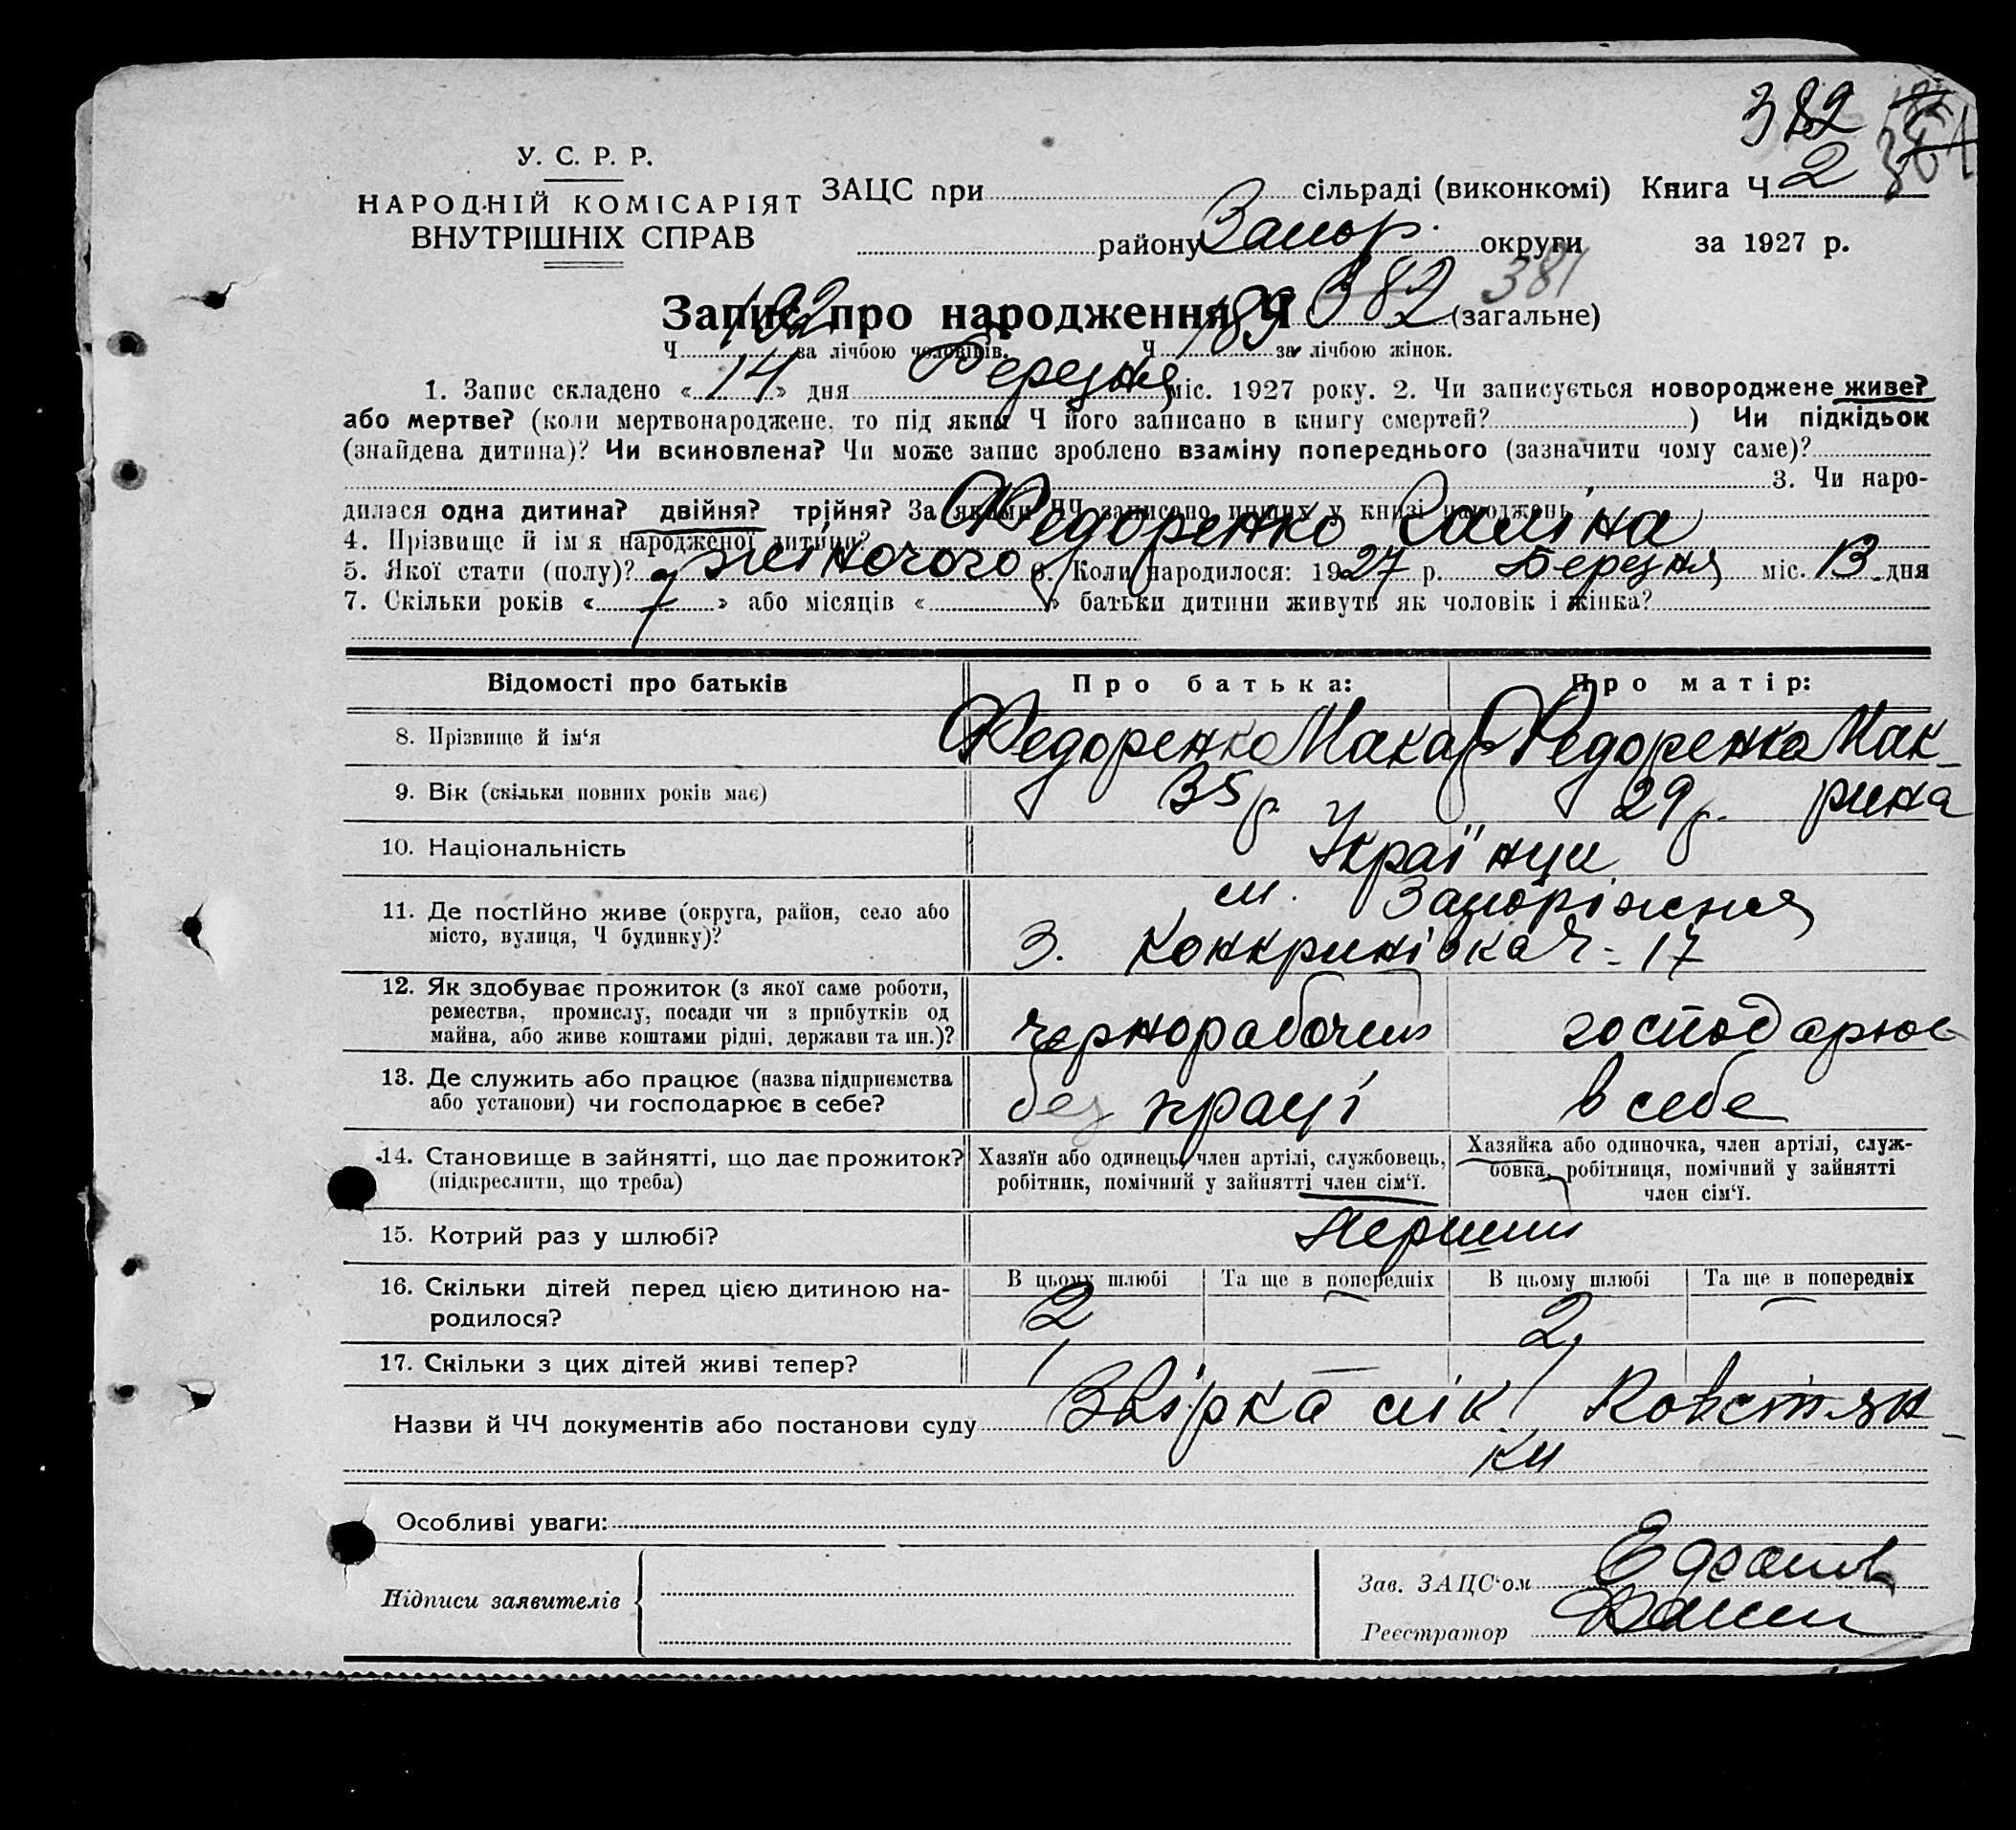 382
У. С. Р. Р.
НАРОДНІЙ КОМІСАРІЯТ
ВНУТРІШНІХ СПРАВ
ЗАЦС при сільраді (виконкомі) Книга Ч 2
району Запор. округи за 1927 р.
Запис про народження Ч 382 381 (загальне)
Ч 192 за лічбою чоловіків. Ч 189 за лічбою жінок.
1. Запис складено « 14 » дня Березня міс. 1927 року. 2. Чи записується новороджене живе?
або мертве? (коли мертвонароджене, то під яким Ч його записано в книгу смертей? ) Чи підкідьок
(знайдена дитина)? Чи всиновлена? Чи може запис зроблено взаміну попереднього (зазначити чому саме)?
3. Чи наро-
дилася одна дитина? двійня? трійня? За якими ЧЧ записано инших у книзі народжень
4. Прізвище й ім'я народженої дитини? Федоренко Галіна
5. Якої стати (полу)? жіночого 6. Коли народилося: 1927 р. Березня міс. 13 дня
7. Скільки років « 7 » або місяців « » батьки дитини живуть як чоловік і жінка?
Відомості про батьків Про батька: Про матір:
8. Прізвище й ім'я Федоренко Макар Федоренко Мак-
9. Вік (скільки повних років має) 35 р. 29 р. рина
10. Національність Українці
11. Де постійно живе (округа, район, село або м. Запоріжжя
місто, вулиця, Ч будинку)? 3. Ч - 17
12. Як здобуває прожиток (з якої саме роботи,
ремества, промислу, посади чи з прибутків од чернорабочий господарює
майна, або живе коштами рідні, держави та ин.)?
13. Де служить або працює (назва підприємства
або установи) чи господарює в себе? без праці в себе
14. Становище в зайнятті, що дає прожиток? Хазяїн або одинець, член артілі, службовець, Хазяйка або одиночка, член артілі, служ-
(підкреслити, що треба) робітник, помічний у зайнятті член сім'ї. бовка, робітниця, помічний у зайнятті
член сім'ї.
15. Котрий раз у шлюбі? Перший
16. Скільки дітей перед цією дитиною на- В цьому шлюбі Та ще в попередніх В цьому шлюбі Та ще в попередніх
родилося? 2 — 2 —
17. Скільки з цих дітей живі тепер? 1 — 1
Назви й ЧЧ документів або постанови суду
ки
Особливі уваги:
Підписи заявителів
Зав. ЗАЦС'ом
Реєстратор